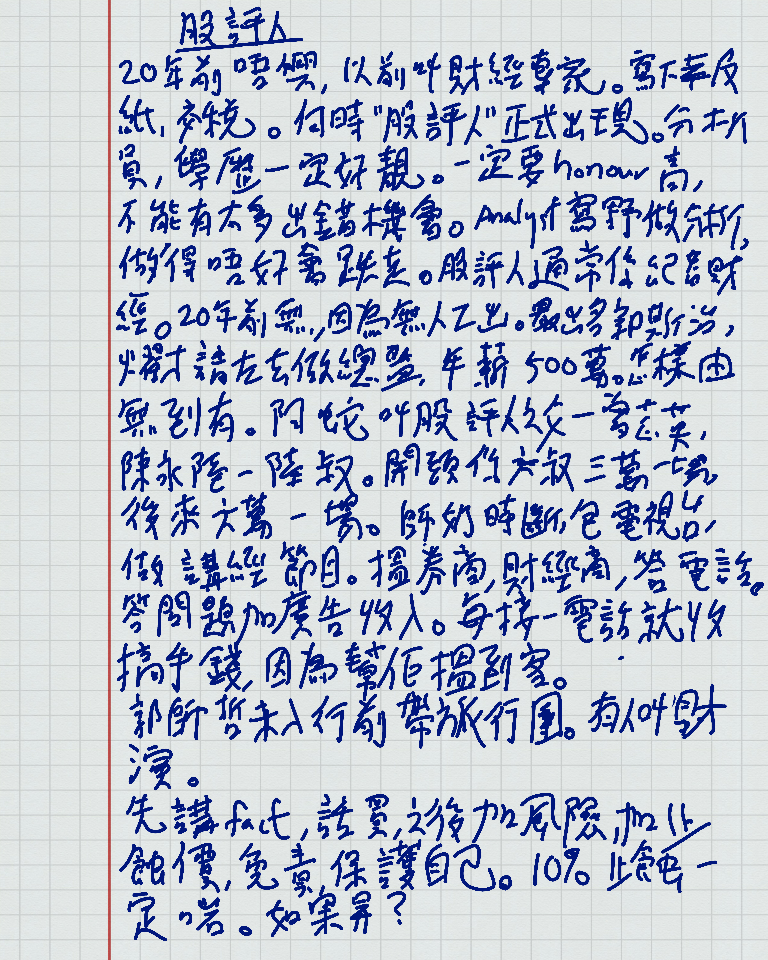 股評人
20年前唔興,以前叫財經專家。寫下年反
紙,交稅。何時"股評人"正式出現。分析
員,學歷一定好靚。一定要honour高,
不能有太多出錯機會。Analyst寫野做分析,
做得唔好會跌走。股評人通常係記者財
經。20年前無,因為無人工出。最出多郭斯治,
爛才請左去做總監,年薪500萬。怎樣由
無到有。阿蛇叫股評人
陳永陸一陸叔。開頭係六叔三萬一場,
後來六萬一場。師奶時斷,包電視台,
做講經節目。搵券商,財經商,答電話。
答問題加廣告收入。每接一電話就收
搞手錢,因為幫佢搵到客。
郭師哲未入行前帶旅行團。有人叫財
演。
先講fact,話買,之後加風險,加止
蝕價,免責,保護自己。10%止蝕一
定啱。如果昇?